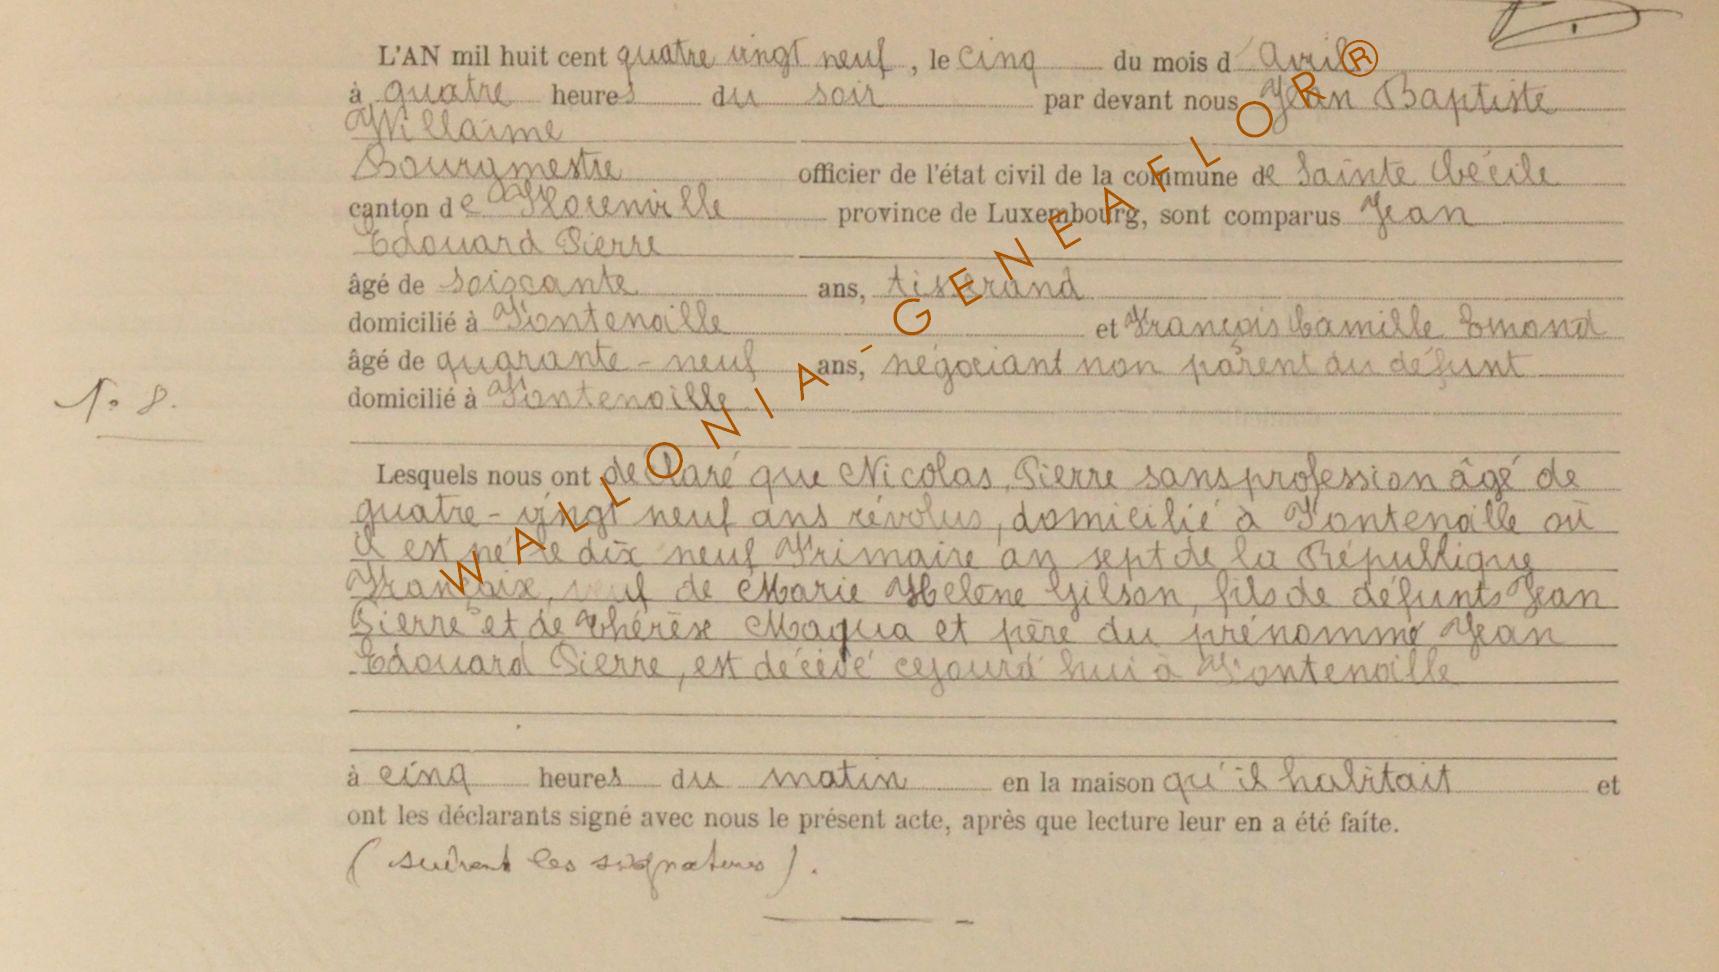 L'AN mil huit cent quatre vingt neuf, le cinq du mois d'Avril
à quatre heures du soir par devant nous Jean Baptiste
Willaime
Bourgmestre officier de l'état civil de la commune de Sainte Cécile
canton de Florenville province de Luxembourg, sont comparus Jean
Edouard Pierre
âgé de soixante ans, tisserand
domicilié à Fontenoille et François Camille Emond
âgé de quarante-neuf ans, négociant non parent du défunt
domicilié à Fontenoille
No 8.
Lesquels nous ont déclaré que Nicolas Pierre sans profession âgé de
quatre-vingt neuf ans révolus, domicilié à Fontenoille où
il est né le dix neuf Frimaire an sept de la République
Françaix, veuf de Marie Helène Gilson, fils de défunts Jean
Pierre et de Thérèse Maqua et père du prénommé Jean
Edouard Pierre, est décédé cejourd'hui à Fontenoille
à cinq heures du matin en la maison qu'il habitait et
ont les déclarants signé avec nous le présent acte, après que lecture leur en a été faite.
(suivent les signatures).
WALLONIA-GENEAFLOR®